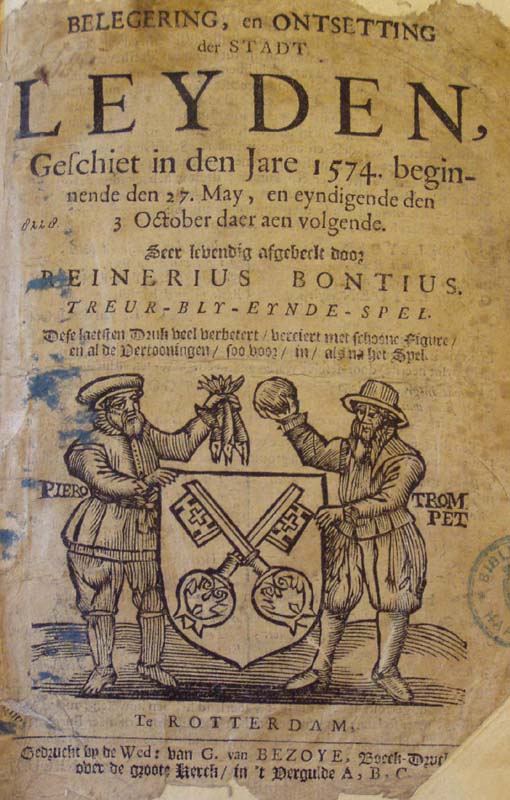 BELEGERING, en ONTSETTING
der STADT
LEYDEN,
Geſchiet in den Jare 1574. begin-
nende den 27. May, en eyndigende den
3 October daer aen volgende.
8228.
Seer levendig afgebeelt door
REINERIUS BONTIUS.
TREUR-BLY-EYNDE-SPEL.
Deſe laetſten Druk veel verbetert / verciert met ſchoone Figure /
en al de Vertooningen / ſoo voor / in / als na het Spel.
PIERO
TROM
PET
BIBL
Te ROTTERDAM,
Gedrucht by de Wed: van G. van BEZOYE, Boeck-Druc
over de groote Kerck / in 't Vergulde A, B, C.